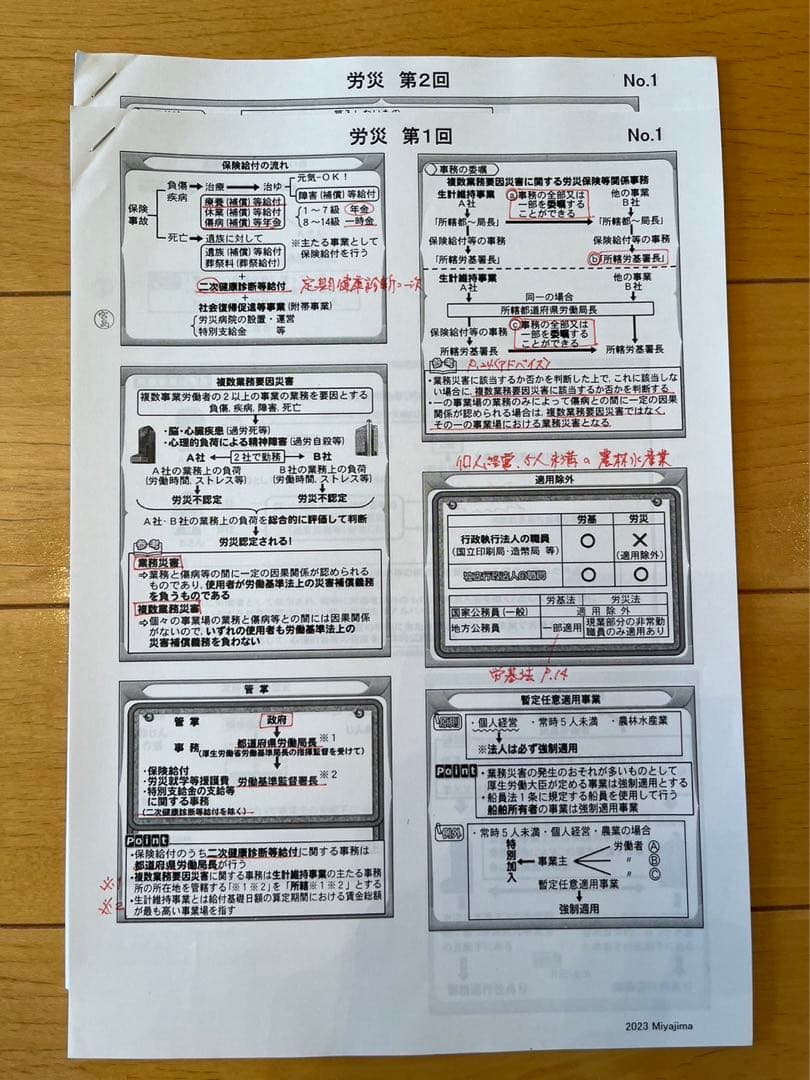 労災 第2回 No.1
労災 第1回 No.1
保険給付の流れ
保険事故
負傷
疾病
治療
治ゆ
元気-OK!
障害(補償)等給付
療養(補償)等給付
休業(補償)等給付
傷病(補償)等年金
1~7級 年金
8~14級 一時金
死亡
遺族に対して
遺族(補償)等給付
葬祭料(葬祭給付)
※主たる事業として
保険給付を行う
+
二次健康診断等給付 定期健康診断=一次
+
社会復帰促進等事業(附帯事業)
労災病院の設置・運営
特別支給金 等
宮島
複数業務要因災害
複数事業労働者の2以上の事業の業務を要因とする
負傷,疾病,障害,死亡
・脳・心臓疾患(過労死等)
・心理的負荷による精神障害(過労自殺等)
A社 2社で勤務 B社
A社の業務上の負荷
(労働時間,ストレス等)
B社の業務上の負荷
(労働時間,ストレス等)
労災不認定 労災不認定
A社・B社の業務上の負荷を総合的に評価して判断
労災認定される!
参考
業務災害
⇒業務と傷病等の間に一定の因果関係が認められる
ものであり,使用者が労働基準法上の災害補償義務
を負うものである
複数業務災害
⇒個々の事業場の業務と傷病等との間には因果関係
がないので,いずれの使用者も労働基準法上の
災害補償義務を負わない
管掌
管掌 政府
事務 都道府県労働局長※1
(厚生労働省労働基準局長の指揮監督を受けて)
・保険給付
・労災就学等援護費
・特別支給金の支給
等に関する事務
(二次健康診断等給付を除く)
労働基準監督署長※2
Point
・保険給付のうち二次健康診断等給付に関する事務は
都道府県労働局長が行う
・複数業務要因災害に関する事務は生計維持事業の主たる事務
所の所在地を管轄する「※1※2」を「所轄※1※2」とする
・生計維持事業とは給付基礎日額の算定期間における賃金総額
が最も高い事業場を指す
※1
※2
事務の委嘱
複数業務要因災害に関する労災保険等関係事務
生計維持事業
A社
他の事業
B社
ⓐ事務の全部又は
一部を委嘱する
ことができる
「所轄都~局長」 「所轄都~局長」
保険給付等の事務 保険給付等の事務
「所轄労基署長」 ⓑ「所轄労基署長」
生計維持事業
A社
他の事業
B社
同一の場合
所轄都道府県労働局長
保険給付等の事務
ⓒ事務の全部又は
一部を委嘱する
ことができる
所轄労基署長 所轄労基署長
参考 P.24<アドバイス>
・業務災害に該当するか否かを判断した上で,これに該当しな
い場合に,複数業務要因災害に該当するか否かを判断する
・一の事業場の業務のみによって傷病との間に一定の因果
関係が認められる場合は,複数業務要因災害ではなく,
その一の事業場における業務災害となる
個人経営,5人未満の農林水産業
適用除外
労基 労災
行政執行法人の職員
(国立印刷局・造幣局 等)
○ ×
(適用除外)
独立行政法人の職員 ○ ○
労基法 労災法
国家公務員(一般) 適用除外
地方公務員 一部適用 現業部分の非常勤
職員のみ適用あり
労基法 P.14
暫定任意適用事業
原則 ・個人経営 ・常時5人未満 ・農林水産業
※法人は必ず強制適用
Point
・業務災害の発生のおそれが多いものとして
厚生労働大臣が定める事業は強制適用とする
・船員法1条に規定する船員を使用して行う
船舶所有者の事業は強制適用事業
例外 ・常時5人未満・個人経営・農業の場合
特別加入
事業主
労働者 Ⓐ
〃 Ⓑ
〃 Ⓒ
暫定任意適用事業
強制適用
2023 Miyajima